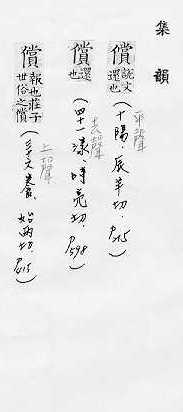 集韻
償 說文還也 (十陽 辰羊切. P.215) 平聲
償 還也 (四十一漾 時亮切. P.598) 去聲
償 報也莊子世俗之償 (三十六養 始兩切. P.415) 上聲